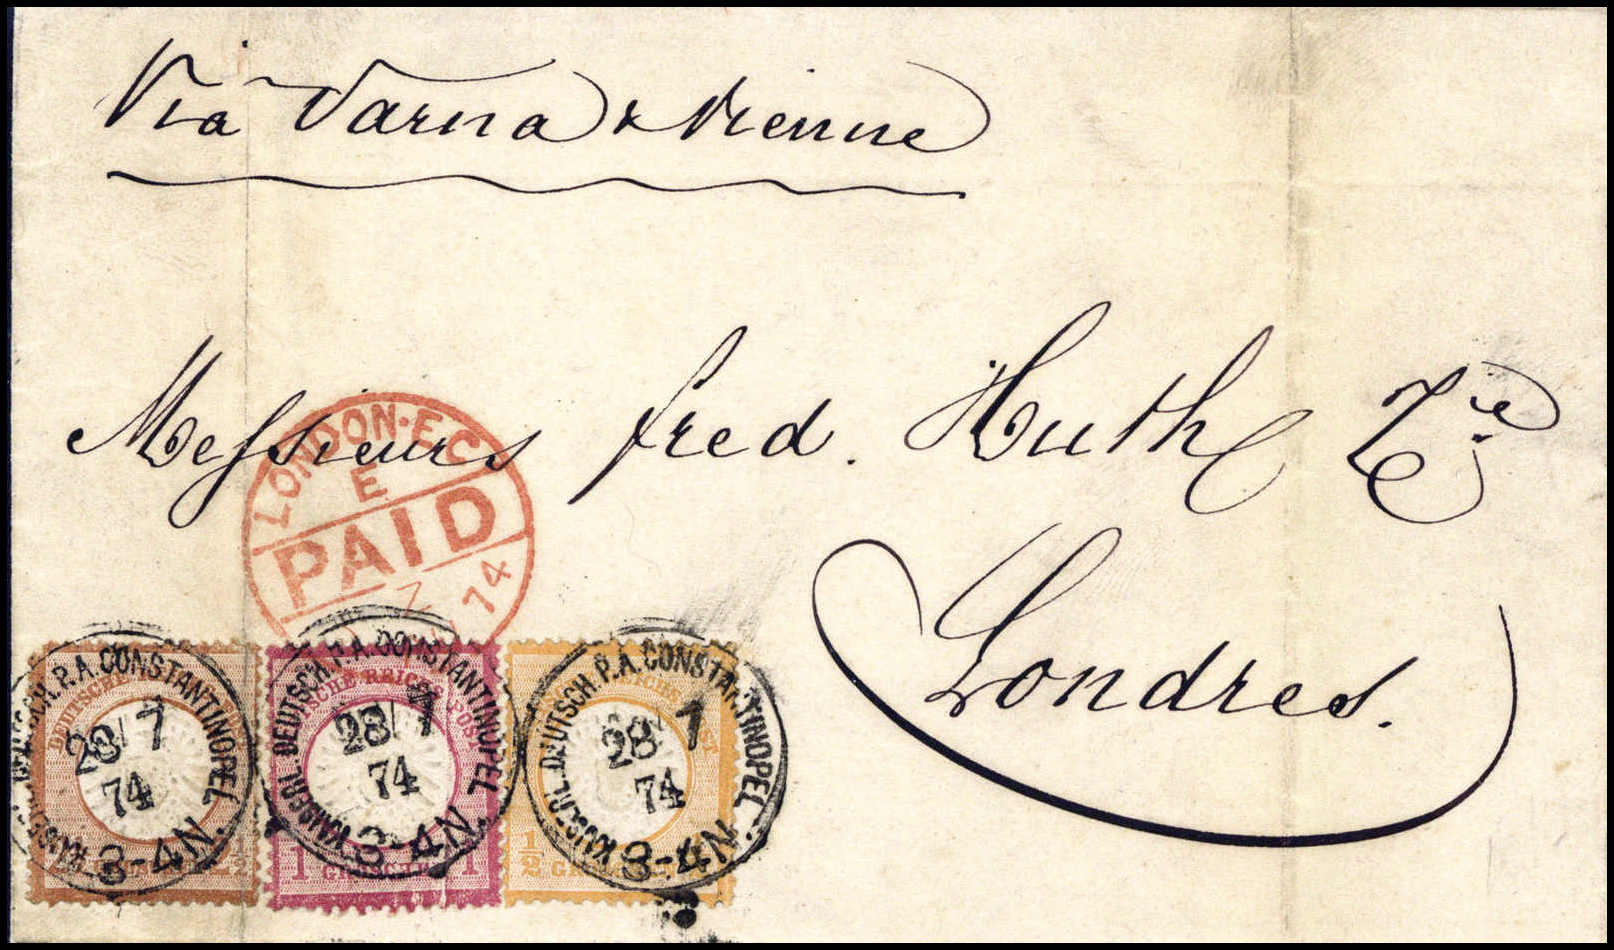 Via Varna & Vienne
Messieurs fred. Huth & Cie
Londres.
LONDON · E C
E
PAID
7 74
KAISERL. DEUTSCH. P.A. CONSTANTINOPEL.
28 7
74
3-4N.
DEUTSCHE
KAISERL. DEUTSCH. P.A. CONSTANTINOPEL.
28 7
74
3-4N.
REICHS POST
1 GROSCHEN 1
KAISERL. DEUTSCH. P.A. CONSTANTINOPEL.
28 7
74
3-4N.
1/2